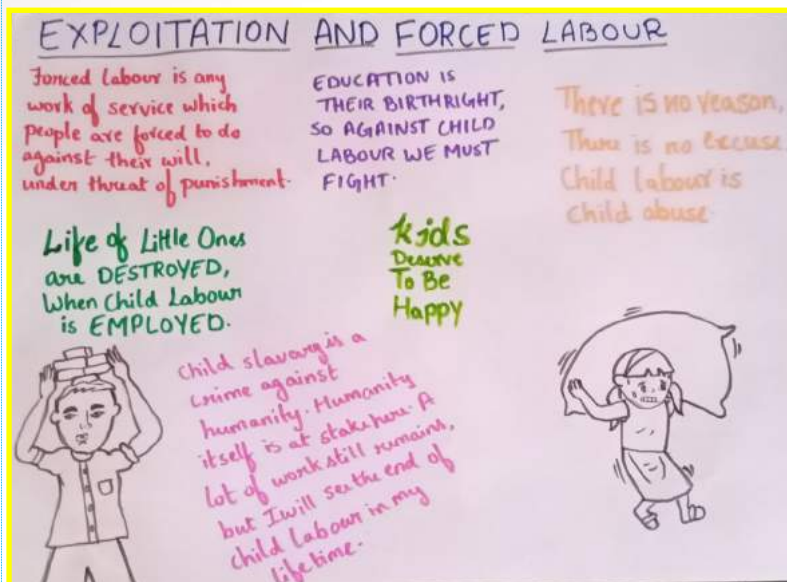 EXPLOITATION AND FORCED LABOUR
Forced Labour is any
work of service which
people are forced to do
against their will,
under threat of punishment.
EDUCATION IS
THEIR BIRTHRIGHT,
SO AGAINST CHILD
LABOUR WE MUST
FIGHT.
There is no reason,
There is no excuse
Child labour is
child abuse
Life of Little Ones
are DESTROYED,
When Child Labour
is EMPLOYED.
Kids
Deserve
To Be
Happy
Child slavary is a
crime against
humanity. Humanity
itself is at stake here. A
lot of work still remains,
but I will see the end of
child labour in my
lifetime.